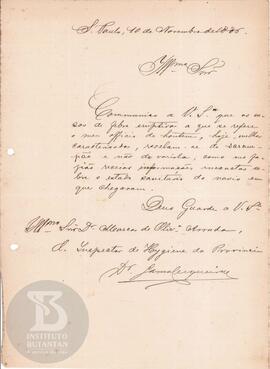 S. Paulo, 10 de Novembro de 1886.
Illmo. Snr
Communico a V. Sa. que os ca-
sos de febre eruptiva a que se refere
o meu officio de hontem, hoje melhor
caracterisados, revelam-se de saram-
pão e não de variola, como me fa-
zião recear informações inexactas so-
bre o estado sanitario do navio em
que chegaram.
Deus Guarde a V. Sa.
Illmo Snr. Dr. Marcos de Olivra. Arruda,
D. Inspector de Hygiene da Provincia
Dr.
INSTITUTO
BUTANTAN